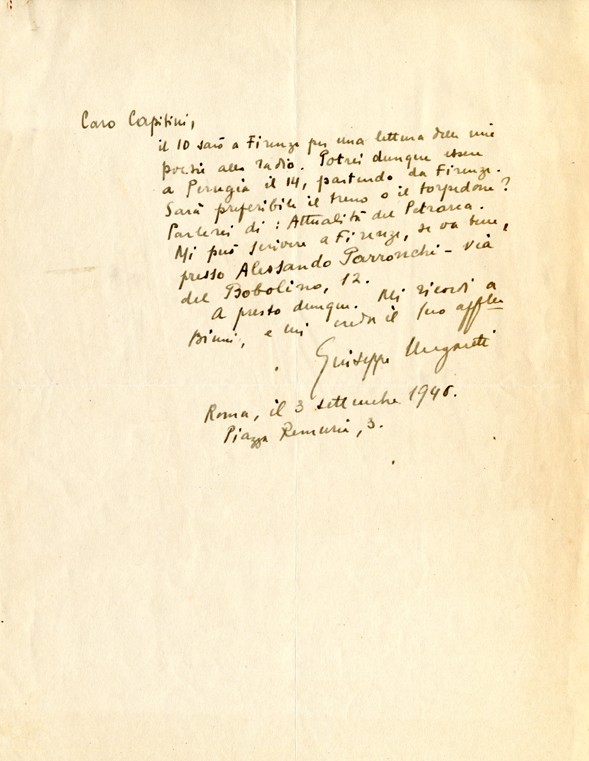 Caro Capitini,
il 10 sarò a Firenze per una lettura delle mie
poesie alla radio. Potrei dunque essere
a Perugia il 14, partendo da Firenze.
Sarà preferibile il treno o il torpedone?
Parlerei di: Attualità del Petrarca.
Mi può scrivere a Firenze, se va bene,
presso Alessando Parronchi - Via
del Bobolino, 12.
A presto dunque. Mi ricordi a
Binni, e mi creda il Suo affmo
Giuseppe Ungaretti
Roma, il 3 settembre 1946.
Piazza Remuria, 3.